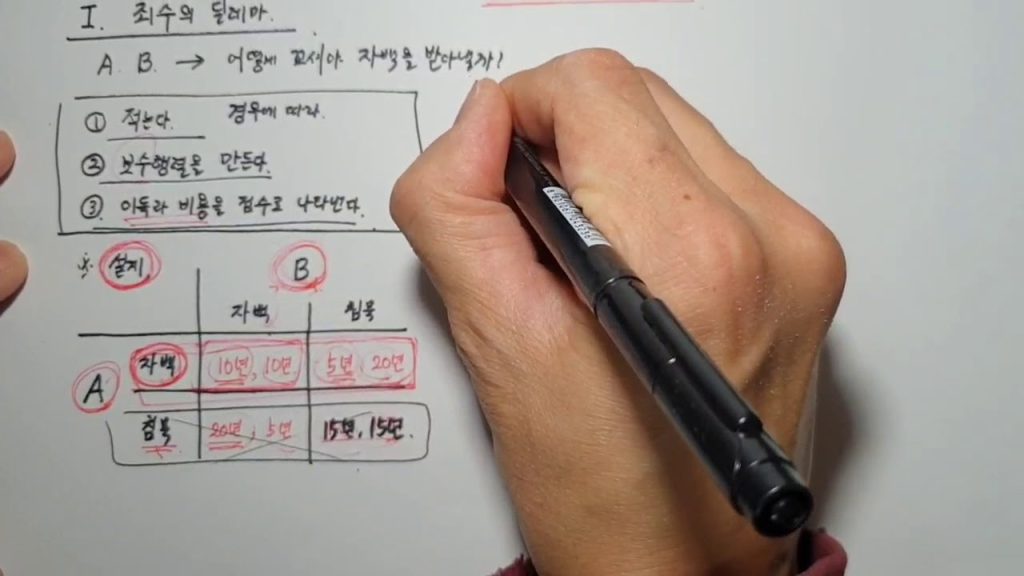 I. 죄수의 딜레마.
A. B. → 어떻게 꼬셔야 자백을 받아낼까?
① 적는다. 경우에 따라.
② 보수행렬을 만든다.
③ 이득과 비용을 점수로 나타낸다.
※ 설계 B
자백 침묵
A 자백 10년, 10년 5년 20년
침묵 20년, 5년 15년, 15년.